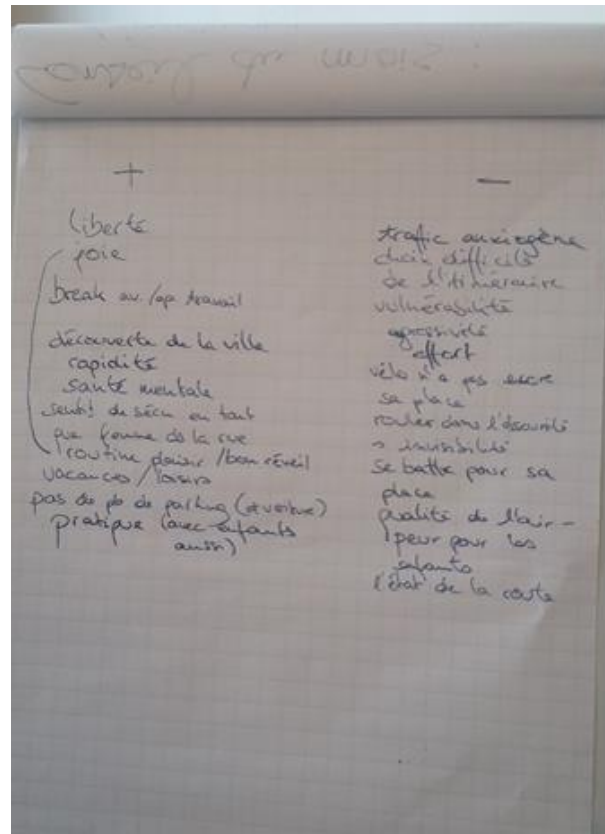 +
liberté
joie
break av./ap travail
découverte de la ville
rapidité
santé mentale
sentt de sécu en tant
que femme ds la rue
routine plaisir / bon réveil
vacances / loisirs
pas de pb de parking (vs voiture)
pratique (avec enfants
aussi)
-
traffic anxiogène
choix difficile
de l'itinéraire
vulnérabilité
agressivité
effort
vélo n'a pas encore
sa place
rouler dans l'obscurité
invisibilité
se battre pour sa
place
qualité de l'air -
peur pour les
enfants
l'état de la route